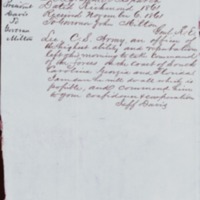 Dated Richmond 1861
Received November 6 1861
To Governor Milton
Davis
To
Governor
Milton
Lee C.S. Army, an officer of
the highest ability and reputation
left this morning to take command
of the forces on the coast of South
Carolina Georgia and Florida
I am sure he will do all which is
possible, and commend him
to your confidence & cooperation
Jeff Davis